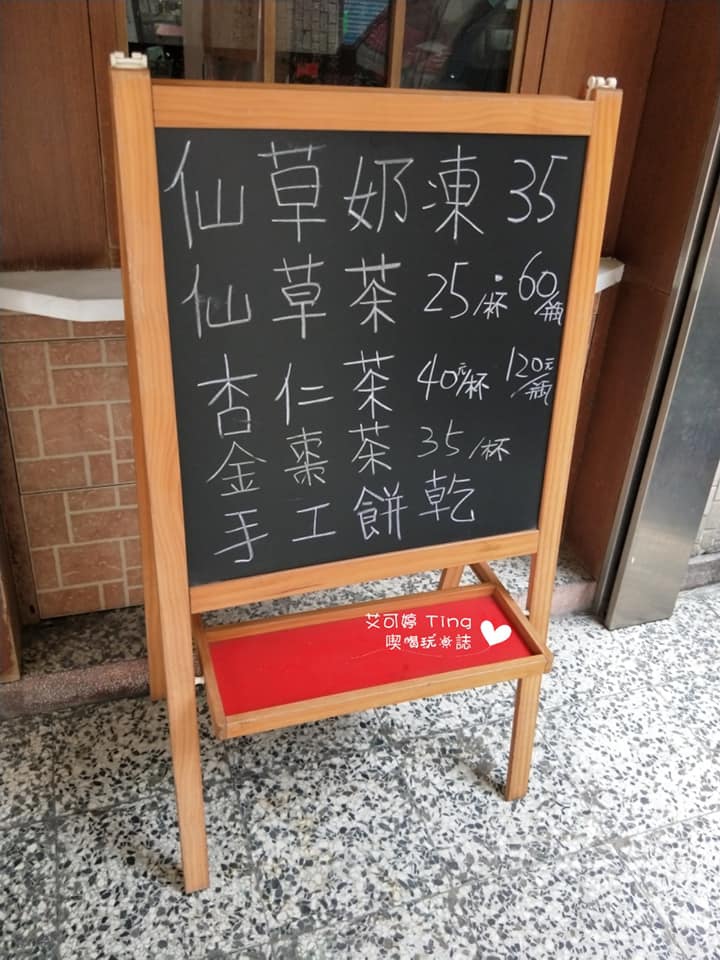 仙草奶凍 35
仙草茶 25/杯・60/瓶
杏仁茶 40元/杯 120元/瓶
金棗茶 35/杯
手工餅乾
艾可婷 Ting
喫喝玩※誌